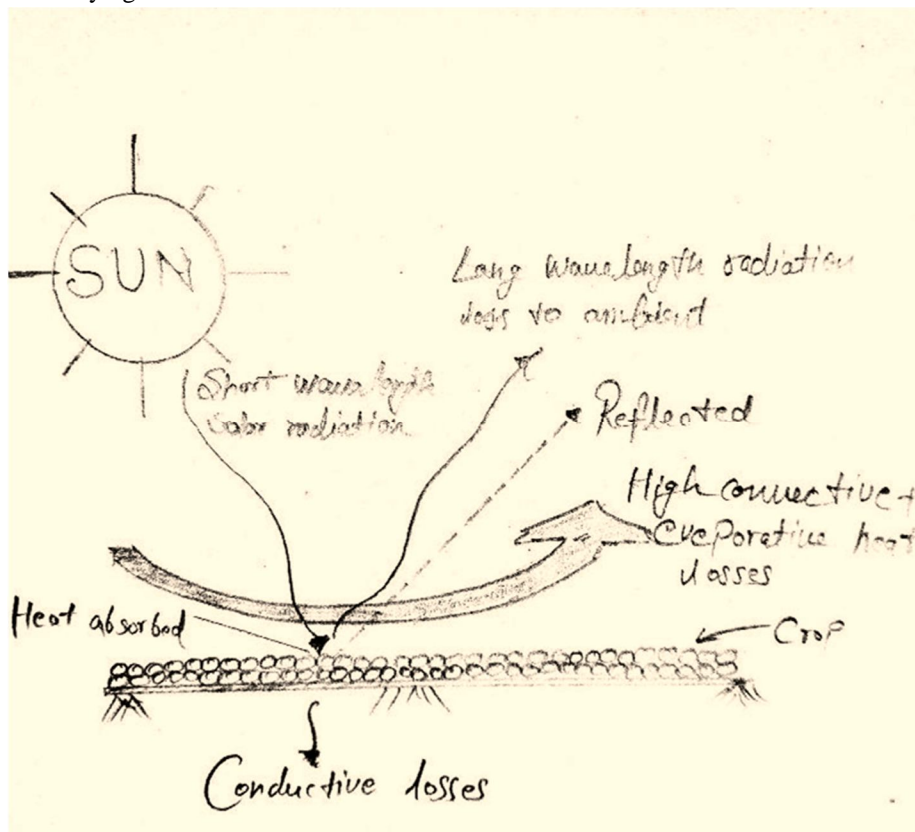 SUN
Long wavelength radiation
loss to ambient
Short wavelength
Solar radiation
Reflected
High connective +
Eveporative heat
losses
Heat absorbed
Crop
Conductive losses